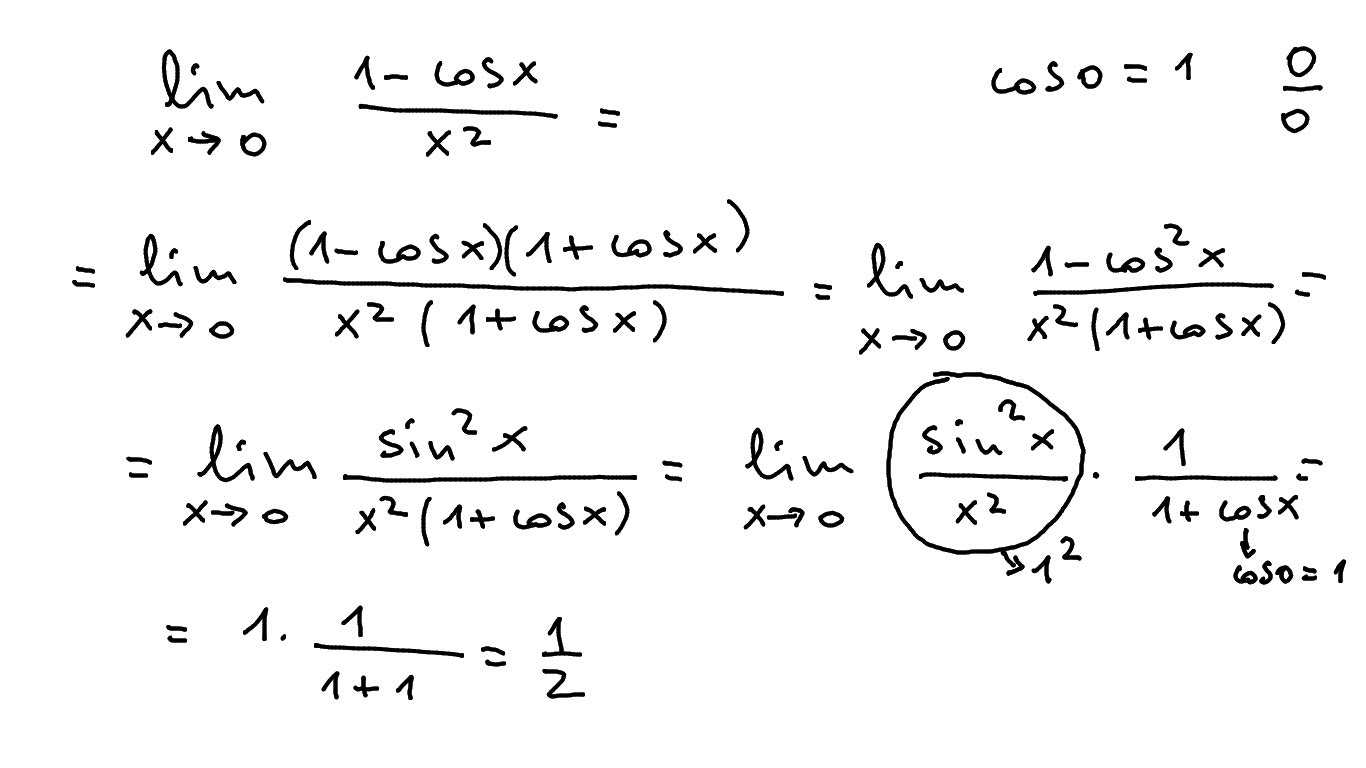 lim x→0 (1 - cos x)/(x²) =     cos 0 = 1     0/0
= lim x→0 ((1 - cos x)(1 + cos x))/(x² (1 + cos x)) = lim x→0 (1 - cos² x)/(x² (1 + cos x)) =
= lim x→0 (sin² x)/(x² (1 + cos x)) = lim x→0 (sin² x)/(x²) · 1/(1 + cos x) =
→ 1²     ↓ cos 0 = 1
= 1 · 1/(1 + 1) = 1/2